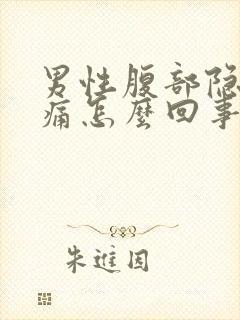 男性腹部隐
痛怎麼回事
朱進国